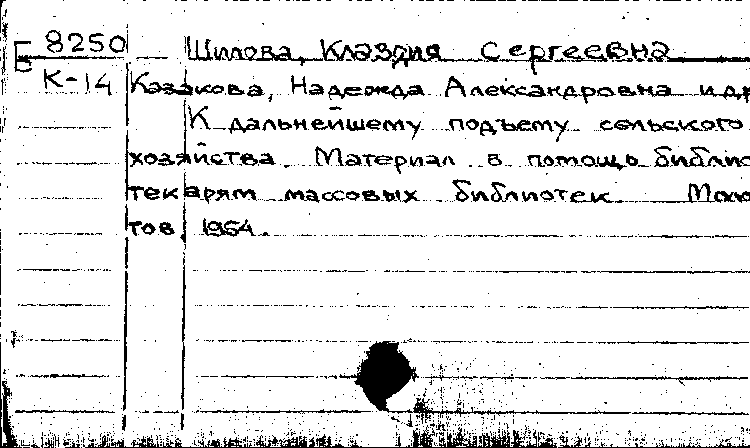 Б 8250 Шилова, Клавдия Сергеевна
К-14 Казакова, Надежда Александровна и др
К дальнейшему подъему сельского
хозяйства. Материал в помощь библио
текарям массовых библиотек. Моло
тов, 1954.